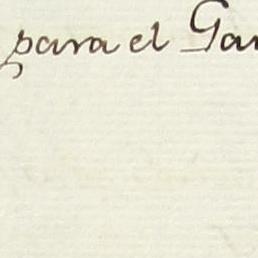 para el Gan